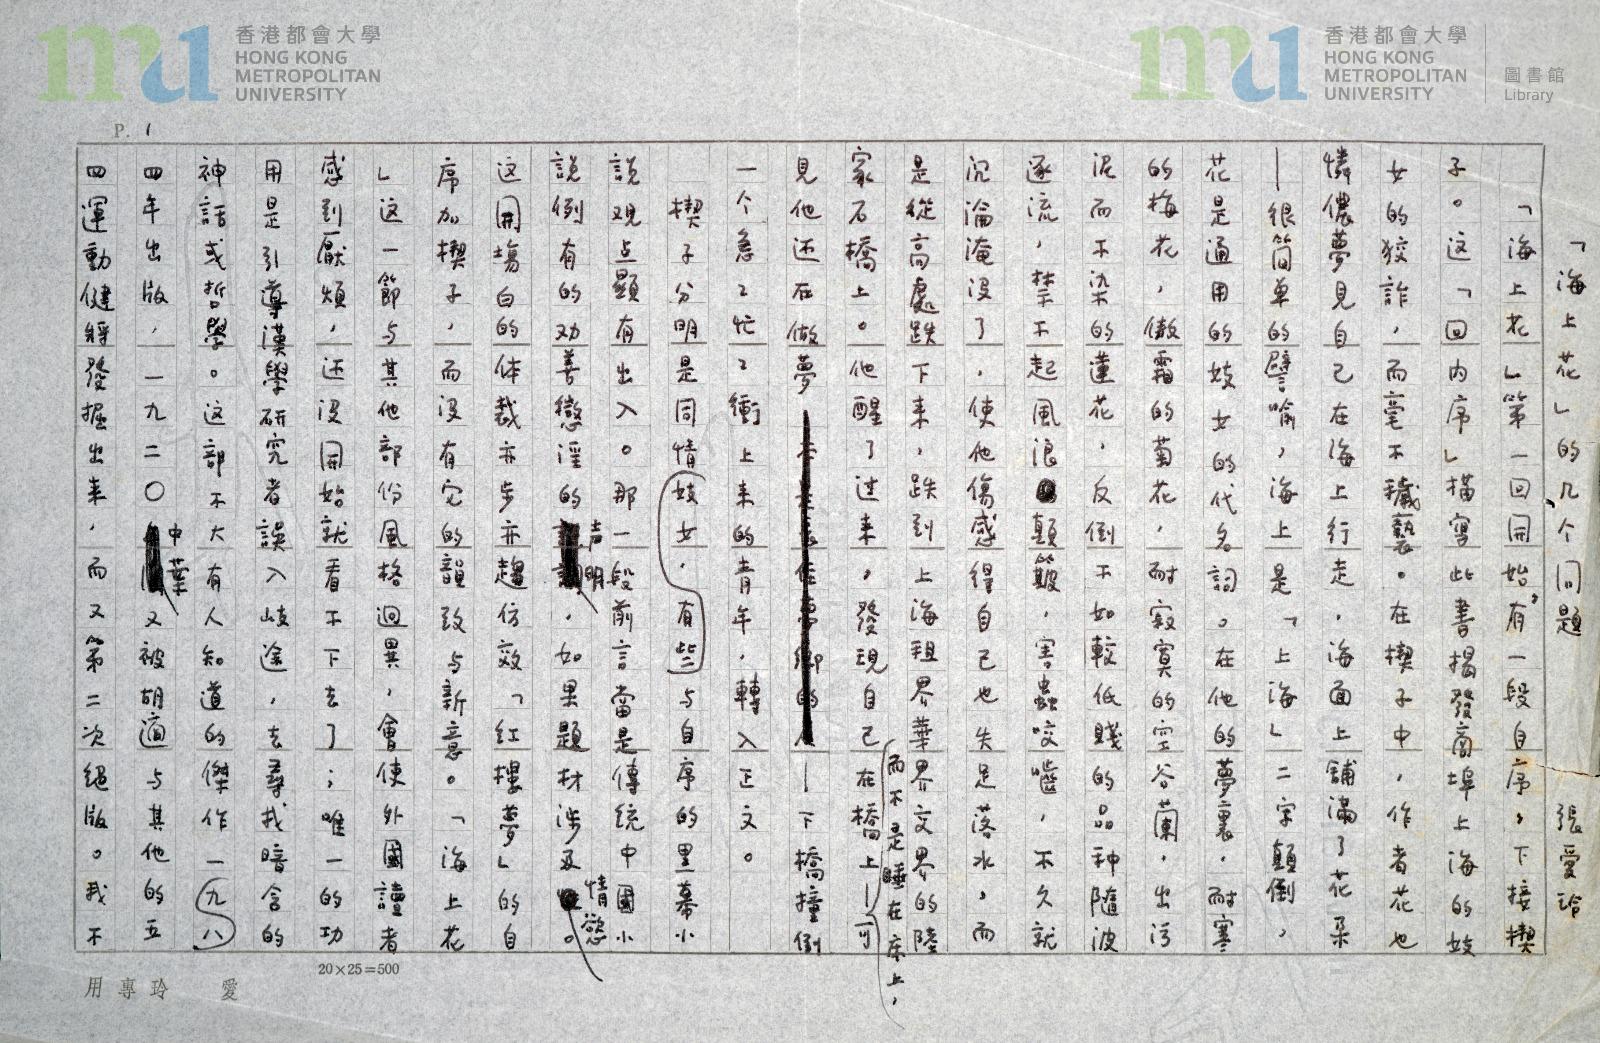 香港都會大學
HONG KONG
METROPOLITAN
UNIVERSITY
香港都會大學
HONG KONG
METROPOLITAN
UNIVERSITY
圖書館
Library
P. 1
「海上花」的几个问题 張愛玲
「海上花」第一回開始有一段自序，下接楔
子。这「回内序」描寫此書揭發商埠上海的妓
女的狡詐，而毫不穢褻。在楔子中，作者花也
憐儂夢見自己在海上行走，海面上舖滿了花朶
—很简单的譬喻，海上是「上海」二字顛倒，
花是通用的妓女的代名詞。在他的夢裏，耐寒
的梅花，傲霜的菊花，耐寂寞的空谷蘭，出污
泥而不染的蓮花，反倒不如較低賤的品种随波
逐流，禁不起風浪顛簸，害蟲咬嚙，不久就
沉淪淹没了，使他傷感得自己也失足落水，而
是從高處跌下来，跌到上海租界華界交界的陸
家石橋上。他醒了过来，發現自己在橋上—可
而不是睡在床上，
見他还在做夢—下橋撞倒
一个急々忙々衝上来的青年，轉入正文。
楔子分明是同情妓女，有些与自序的黑幕小
説观点顯有出入。那一段前言當是傳统中國小
説例有的劝善懲淫的声明，如果題材涉及情慾。
这開場白的体裁亦步亦趨仿效「红樓夢」的自
序加楔子，而没有它的韻致与新意。「海上花
」这一節与其他部份風格迥異，會使外國讀者
感到厭煩，还没開始就看不下去了；唯一的功
用是引導漢學研究者誤入岐途，去尋找暗含的
神話或哲學。这部不大有人知道的傑作一八九
四年出版，一九二〇中葉又被胡適与其他的五
四運動健將發掘出来，而又第二次絕版。我不
20×25=500
愛玲專用